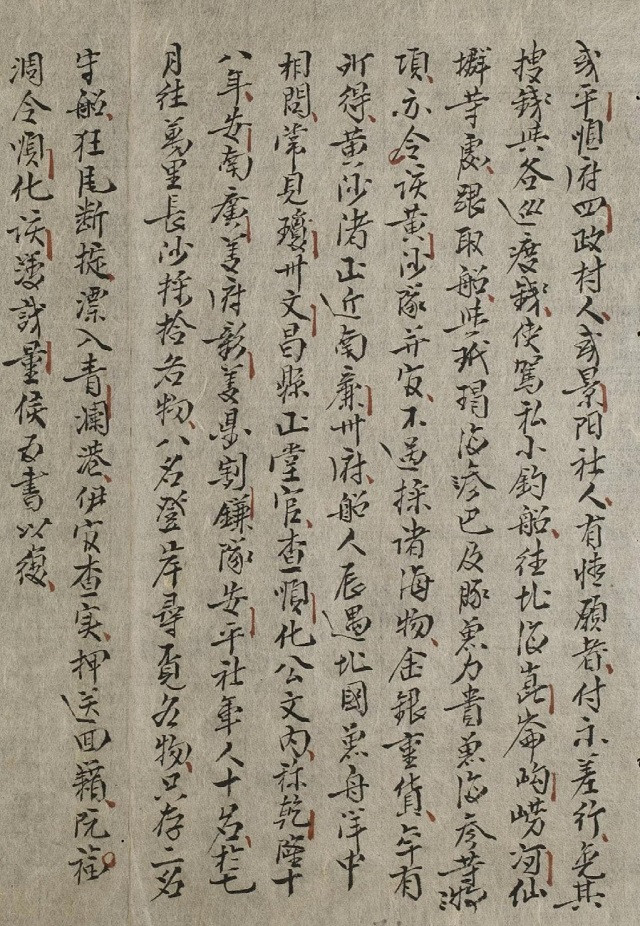 或平順府四政村人或景陽社人有情願者付示差行免其
搜錢與各巡渡錢使駕私小釣船往北海崑崙岣嶗河仙
攔等處跟取船與玳瑁海渗巴及豚魚力貴魚海參等項
項亦令該黃沙隊并官不過採諸海物金銀重貨罕有
所得黃沙渚正近南廉州府船人辰遇北國魚舟洋中
相問常見瓊州文昌縣正堂官查順化公文內称乾隆十
八年安南廣義府彰義縣割鎌隊安平社軍人十名於七
月往萬里長沙採拾各物八名登岸尋覓各物只存二名
守船狂風断捉漂入青瀾港伊官查实押送回籍阮福
凋令順化該簿識量侯為書以復